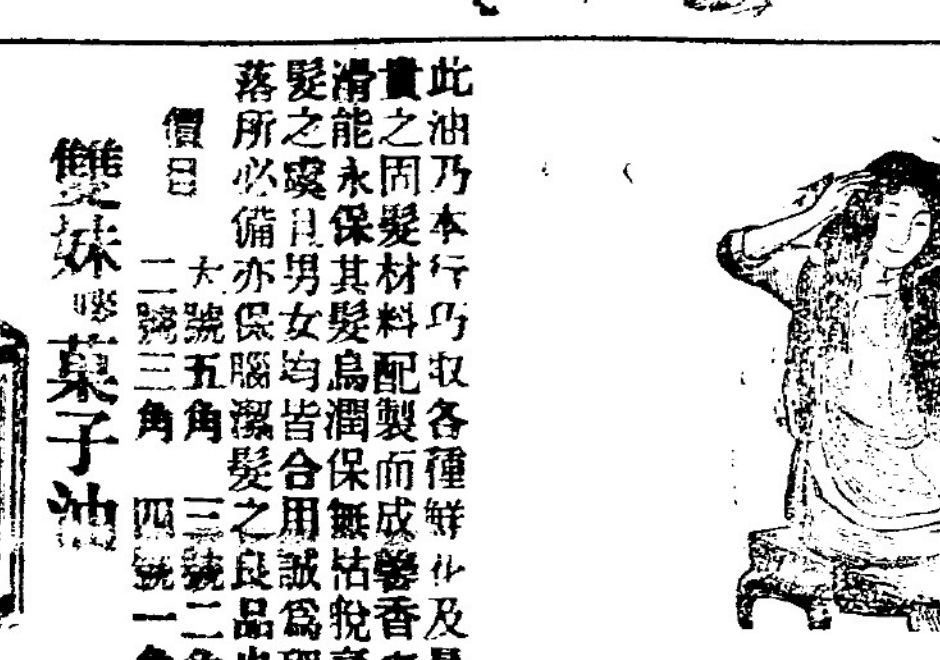 此油乃本行巧取各種鮮花及
貴之固髮材料配製而成馨香
滑能永保其髮烏潤保無枯脫
髮之虞且男女均皆合用誠爲
落所必備亦保腦潔髮之良品也
價目
大號五角 三號二角
二號三角 四號一角
雙妹嘜菓子油